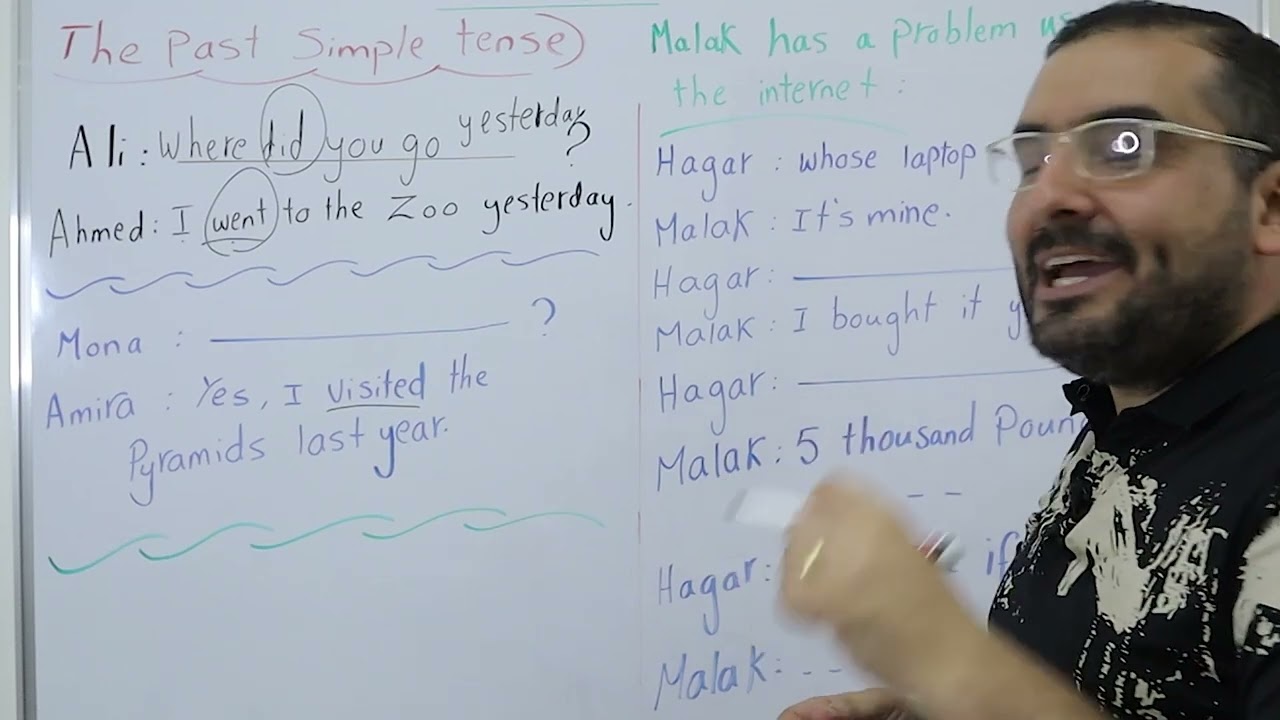 The Past Simple tense)
Ali: Where did you go yesterday?
Ahmed: I went to the Zoo yesterday.
Mona : ?
Amira : Yes, I visited the
Pyramids last year.
Malak has a problem
the internet :
Hagar : whose laptop
Malak : It's mine.
Hagar:
Malak : I bought it
Hagar:
Malak: 5 thousand
Hagar: if
Malak: --